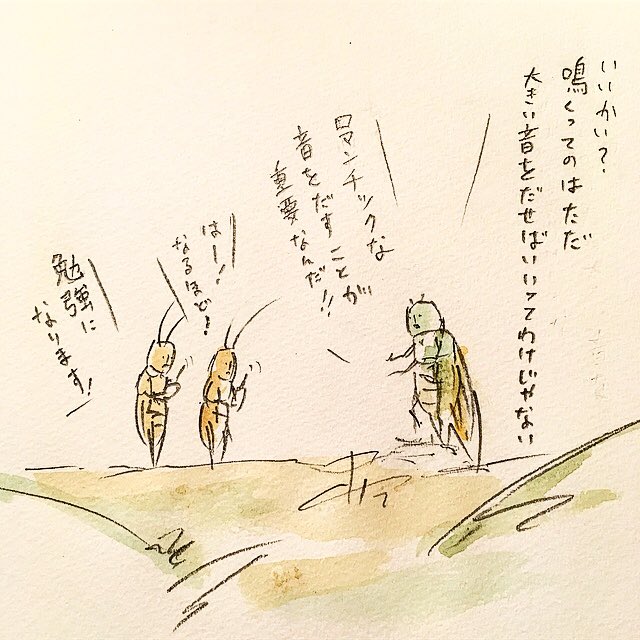 いいかい?
鳴くってのはただ
大きい音をだせばいいってわけじゃない
ロマンチックな
音をだすことが
重要なんだ!!
はー!
なるほど!
勉強に
なります!